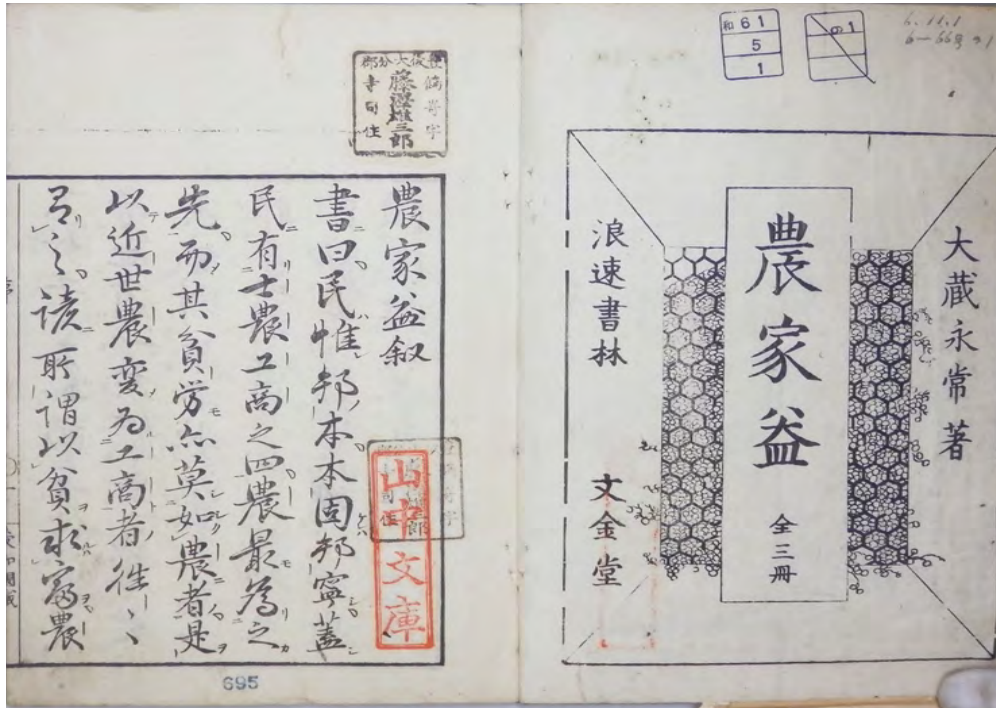 和61
5
1
の1
6.11.1
大蔵永常著
農家益
全三冊
浪速書林
文金堂
藤澤雄三郎
農家益叙
書曰民惟邦本本固邦寧蓋
民有士農工商之四農最為之
先而其貧労亦莫如農者是
以近世農変為工商者徃〻
有之諺所謂以貧求富農
山中文庫
695